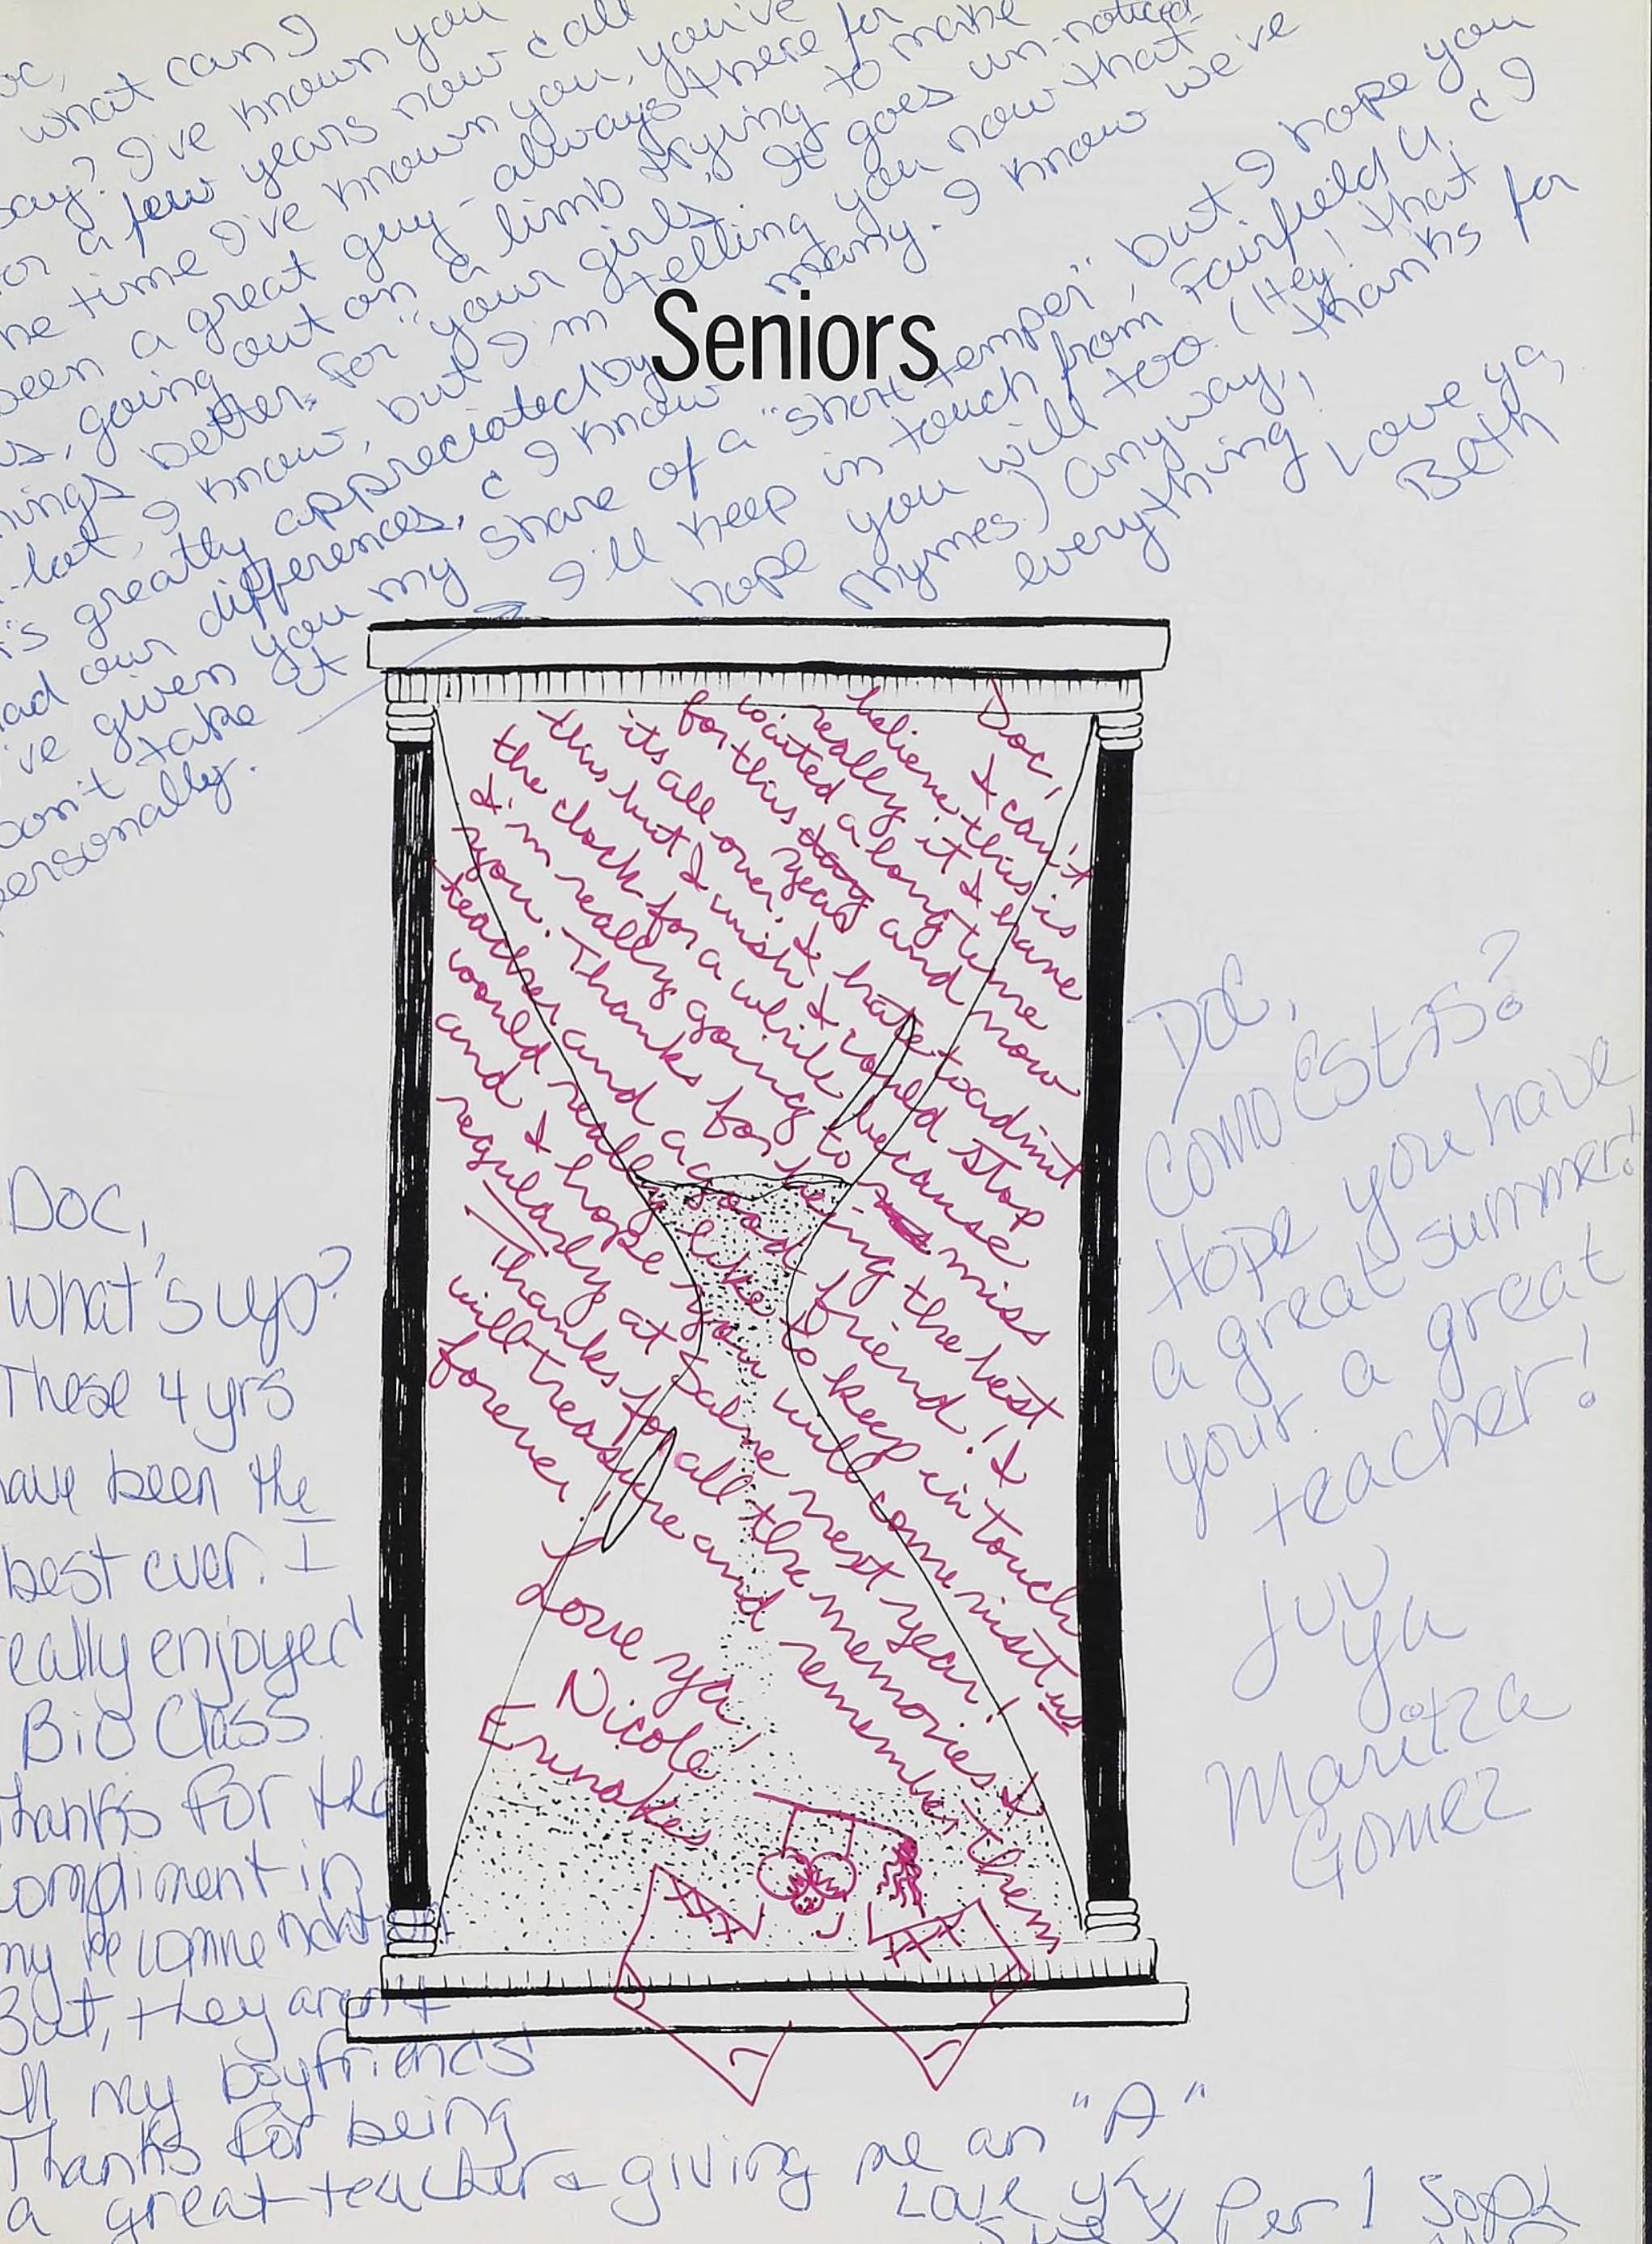 what can I
say? I've known you
for a few years now & all
the time I've known you, you've
been a great guy - always there for
us, going out on a limb trying to make
things better for "your girls." It goes un-noticed
a lot, I know, but I'm telling you now that
it's greatly appreciated by many. I know we've
had our differences, & I know
I've given you my share of a "short temper", but I hope you
don't take it
personally.
I'll keep in touch from Fairfield U. & I
hope you will too. (Hey! that
rhymes) Anyway, thanks for
everything
Love ya,
Beth
Seniors
Doc,
I can't
believe this is
really it. I have
waited a long time
for this day year and now
its all over. I hate to admit
this but I wish I could stop
the clock for a while because
I'm really going to miss
you. Thanks for being the best
teacher and a good friend! I
would really like to keep in touch
and I hope you will come visit us
regularly at Salve next year!
Thanks for all the memories I
will treasure and remember them
forever!
Love ya,
Nicole
Doc,
Como Estas?
Hope you have
a great summer!
your a great
teacher!
Luv
Ya
Maritza
Gomez
Doc,
What's up?
These 4 yrs
have been the
best ever. I
really enjoyed
Bio Class
Thanks for the
compliment in
my recommendation
But, they aren't
all my boyfriends!
Thanks for being
a great teacher & giving me an "A"
Love ya
Per 1 Soph